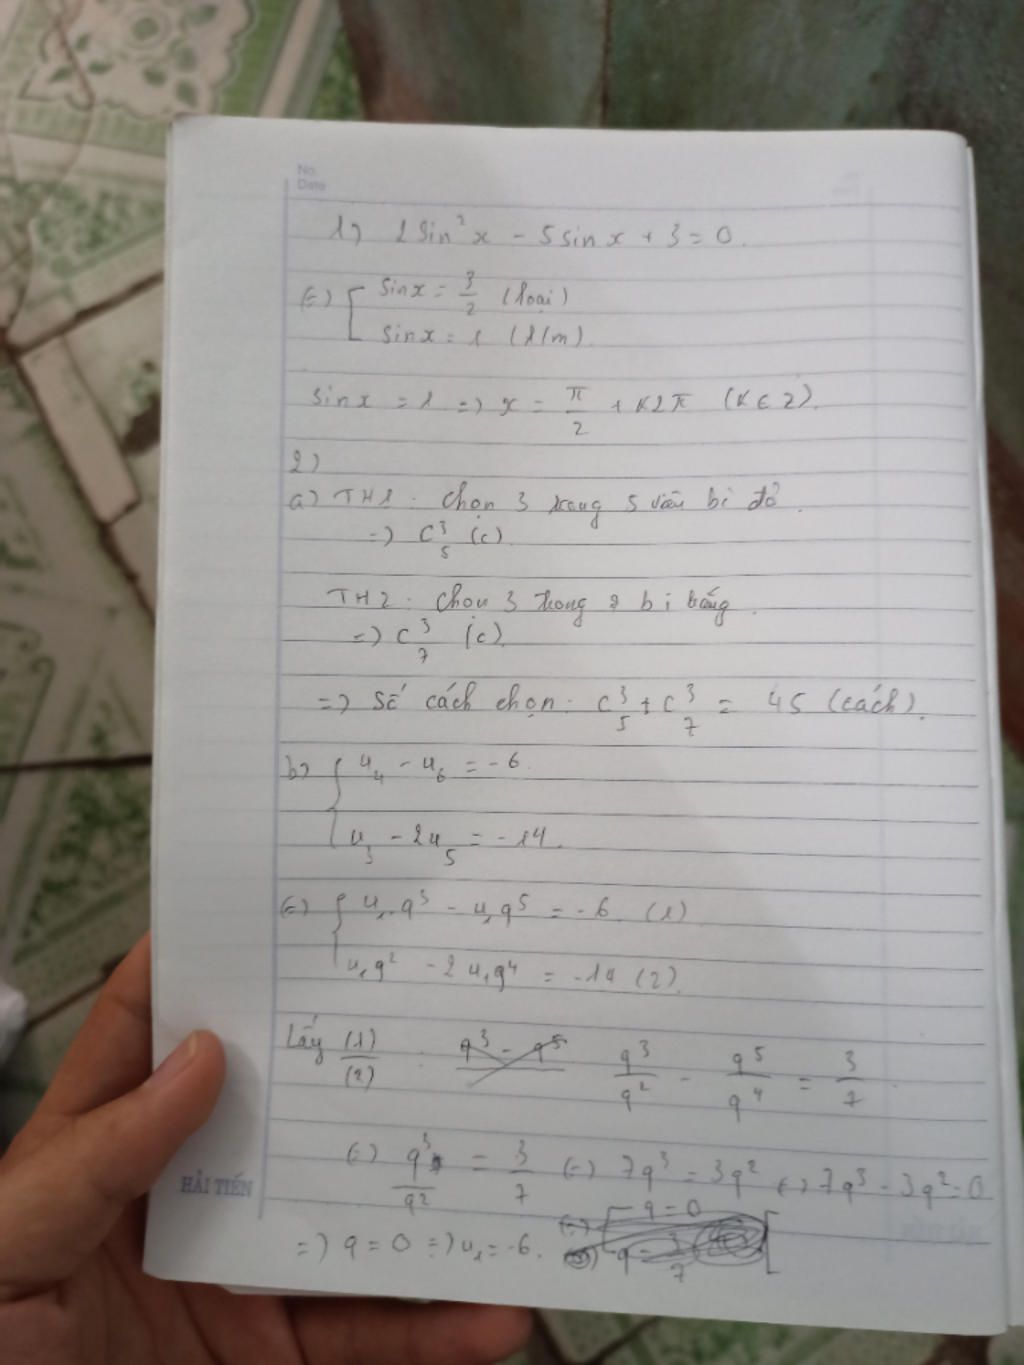 No.
Date
1) 2 sin² x - 5 sin x + 3 = 0.
(=) [ sin x = 3/2 (loại)
sin x = 1 (t/m).
sin x = 1 => x = π/2 + k2π (k ∈ Z).
2)
a) TH1: Chọn 3 trong 5 viên bi đỏ.
=) C³₅ (c).
TH2: Chọn 3 trong 7 bi trắng.
=) C³₇ (c).
=) Số cách chọn: C³₅ + C³₇ = 45 (cách).
b) { u₄ - u₆ = -6.
u₃ - 2u₅ = -14.
(=) { u₁.q³ - u₁q⁵ = -6. (1)
u₁q² - 2u₁q⁴ = -14 (2).
Lấy (1)/(2) . q³ - q⁵ q³/q² - q⁵/q⁴ = 3/7.
(=) q³/q² = 3/7 (=) 7q³ = 3q² (=) 7q³ - 3q² = 0
(=) [ q = 0
=) q = 0 =) u₁ = -6. q = 3/7
HẢI TIẾN